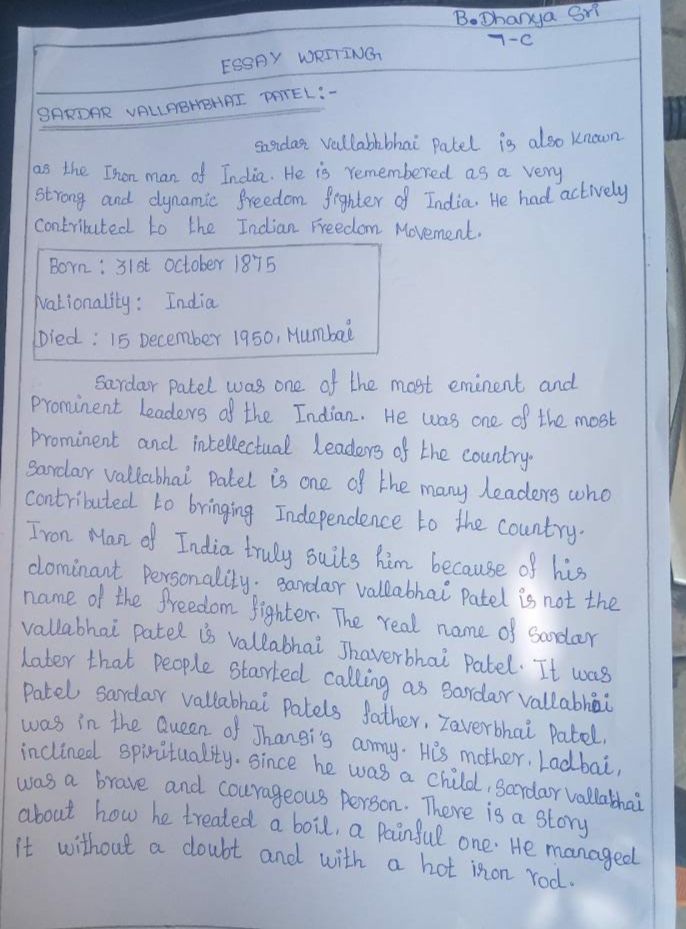 B. Dhanya Sri
7-C
ESSAY WRITING
SARDAR VALLABHBHAI PATEL:-
Sardar Vallabhbhai Patel is also known
as the Iron man of India. He is remembered as a very
strong and dynamic freedom fighter of India. He had actively
Contributed to the Indian Freedom Movement.
Born : 31st October 1875
Nationality : India
Died : 15 December 1950, Mumbai
Sardar Patel was one of the most eminent and
Prominent leaders of the Indian. He was one of the most
Prominent and intellectual leaders of the country.
Sardar Vallabhai Patel is one of the many leaders who
Contributed to bringing Independence to the Country.
Iron Man of India truly suits him because of his
dominant Personality. Sardar Vallabhai Patel is not the
name of the freedom fighter. The real name of Sardar
Vallabhai Patel is Vallabhai Jhaverbhai Patel. It was
Later that People started calling as Sardar Vallabhai
Patel, Sardar Vallabhai Patels father, Zaverbhai Patel,
was in the Queen of Jhansi's army. His mother, Ladbai,
inclined Spirituality. Since he was a Child, Sardar Vallabhai
was a brave and courageous Person. There is a Story
about how he treated a boil, a Painful one. He managed
it without a doubt and with a hot iron rod.